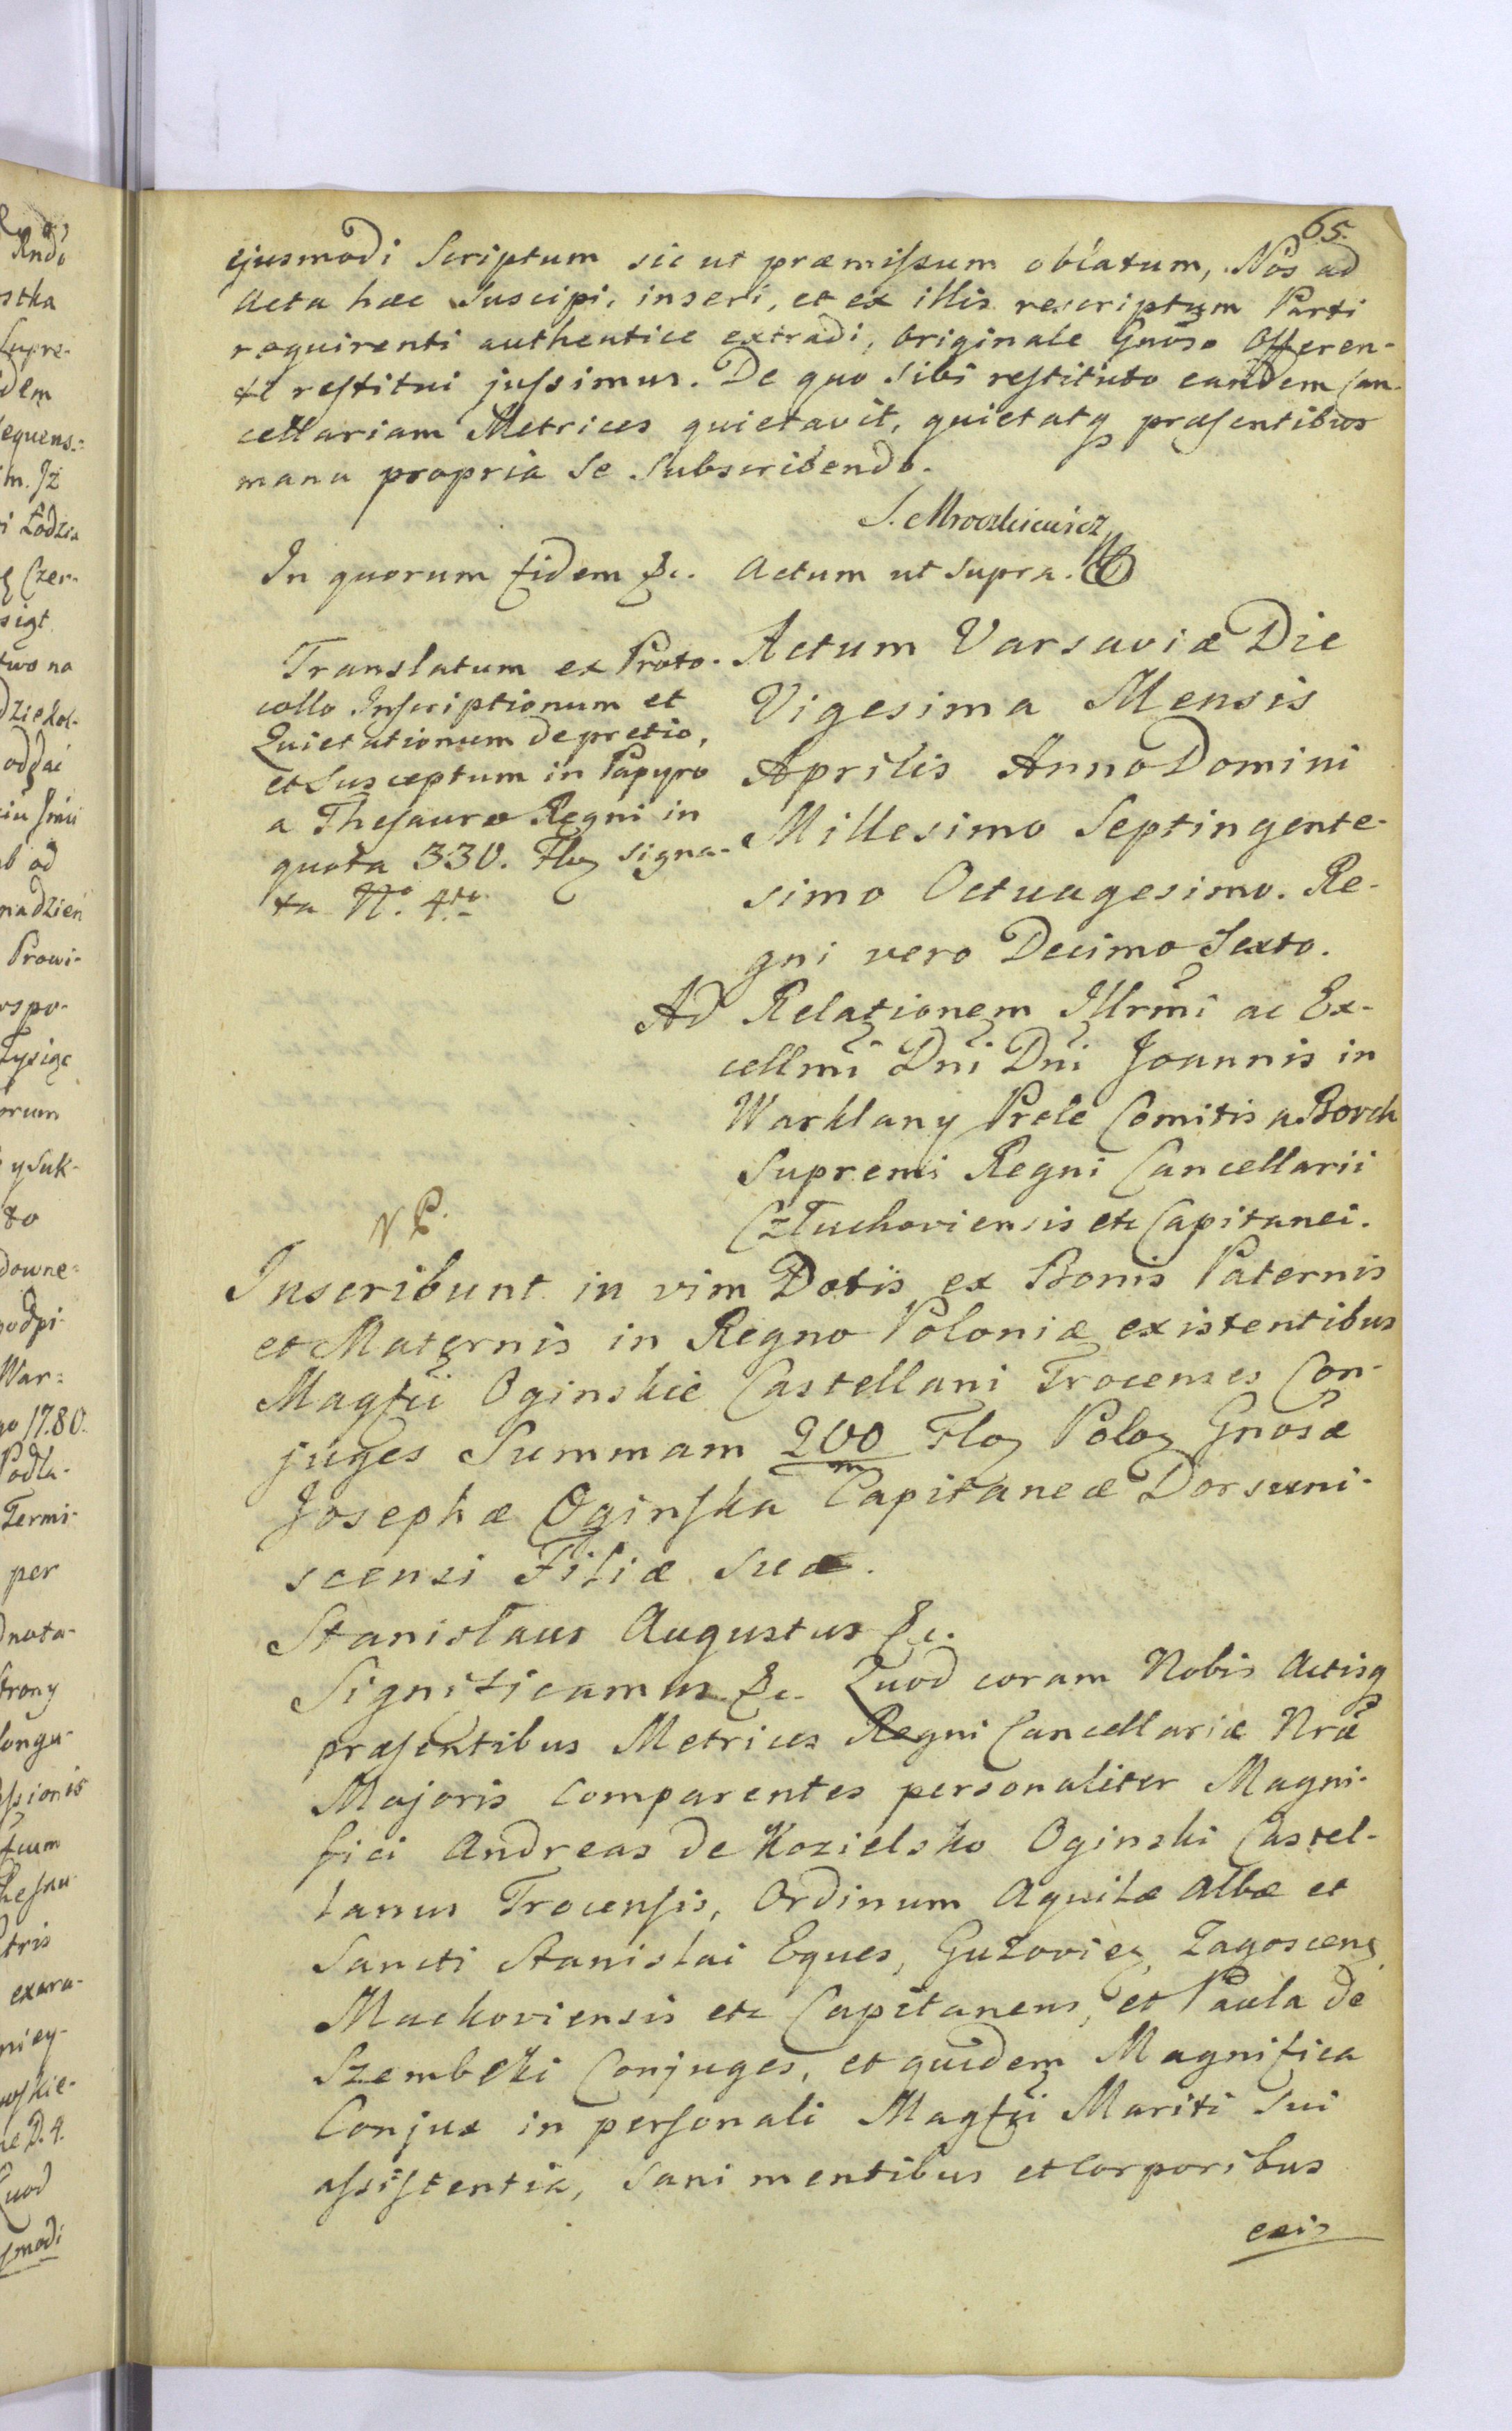 65.
ejusmodi Scriptum sic ut præmissum oblatum, Nos ad
Acta hæc Suscipi, inseri, et ex illis rescriptum Parti
requirenti authentice extradi, Originale Gnoso Offeren-
ti restitui jussimus. De quo Sibi restituto eandem Can-
cellariam Metrices quietavit, quietatq præsentibus
manu propria Se Subscribendo.
S. Mroczkiewicz
In quorum fidem &c. Actum ut Supra.
Translatum ex Proto-
collo Inscriptionum et
Quietationum de pretio,
et Susceptum in Papyro
a Thesauro Regni in
quota 330. Flo signa-
ta No. 4to
Actum Varsaviæ Die
Vigesima Mensis
Aprilis Anno Domini
Millesimo Septingente-
simo Octuagesimo. Re-
gni vero Decimo Sexto.
Ad Relationem Illrmi ac Ex-
cellmi Dni Dni Joannis in
Warklany Prele Comitis a Borch
Supremi Regni Cancellarii
Człuchoviensis etc Capitanei.
NP.
Inscribunt in vim Dotis ex Bonis Paternis
et Maternis in Regno Poloniæ existentibus
Magfii Oginskie Castellani Trocenses Con-
juges Summam 200 Flo Polo Gnosæ
m
Josephæ Oginska Capitaneæ Dorsuni-
scensi Filiæ Suæ.
Stanislaus Augustus &c.
Significamus &c. Quod coram Nobis Actisq
præsentibus Metrices Regni Cancellariæ Nræ
Majoris Comparentes personaliter Magni-
fici Andreas de Kozielsko Oginski Castel-
lanus Trocensis, Ordinum Aquilæ Albæ et
Sancti Stanislai Eques, Guzovien, Zagoscens
Muchoviensis etc Capitaneus, et Paula de
Szembeki Conjuges, et quidem Magnifica
Conjux in personali Magfii Mariti Sui
assistentia, Sani mentibus et Corporibus
exis